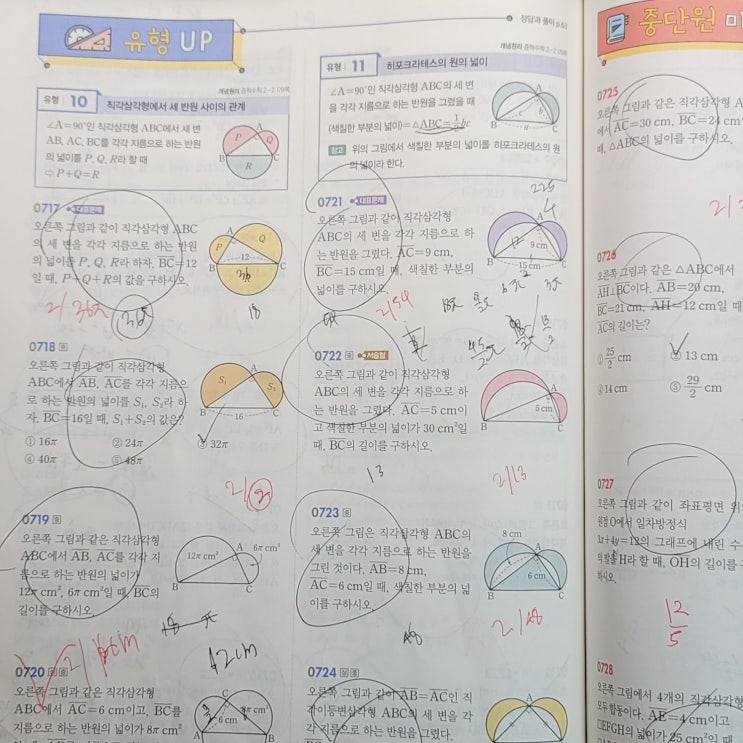 정답과 풀이 p.63
유형 UP
개념원리 중학수학 2-2 179쪽
유형 10 직각삼각형에서 세 반원 사이의 관계
∠A=90°인 직각삼각형 ABC에서 세 변
AB, AC, BC를 각각 지름으로 하는 반원
의 넓이를 P, Q, R라 할 때
⇨ P+Q=R
A
P
Q
B
C
R
0717 대표문제
오른쪽 그림과 같이 직각삼각형 ABC
의 세 변을 각각 지름으로 하는 반원
의 넓이를 P, Q, R라 하자. BC=12
일 때, P+Q+R의 값을 구하시오.
A
P
Q
B
12
C
36
2/36π
36π
18
0718 중
오른쪽 그림과 같이 직각삼각형
ABC에서 AB, AC를 각각 지름으
로 하는 반원의 넓이를 S₁, S₂라 하
자. BC=16일 때, S₁+S₂의 값은?
① 16π ② 24π ③ 32π
④ 40π ⑤ 48π
S₁
A
S₂
B
16
C
2/②
0719 중
오른쪽 그림과 같이 직각삼각형
ABC에서 AB, AC를 각각 지
름으로 하는 반원의 넓이가
12π cm², 6π cm²일 때, BC의
길이를 구하시오.
12π cm²
A
6π cm²
B
C
12cm
0720
오른쪽 그림과 같은 직각삼각형
ABC에서 AC=6 cm이고, BC를
지름으로 하는 반원의 넓이가 8π cm²
C
6 cm
8π cm²
A
B
유형 11 히포크라테스의 원의 넓이
∠A=90°인 직각삼각형 ABC의 세 변
을 각각 지름으로 하는 반원을 그렸을 때
(색칠한 부분의 넓이)=△ABC=½bc
참고 위의 그림에서 색칠한 부분의 넓이를 히포크라테스의 원
의 넓이라 한다.
A
c
b
B
a
C
0721 대표문제
오른쪽 그림과 같이 직각삼각형
ABC의 세 변을 각각 지름으로 하
는 반원을 그렸다. AC=9 cm,
BC=15 cm일 때, 색칠한 부분의
넓이를 구하시오.
225
4
A
12
9 cm
B
15 cm
C
54
2/54
0722 중 서술형
오른쪽 그림과 같이 직각삼각형
ABC의 세 변을 각각 지름으로 하
는 반원을 그렸다. AC=5 cm이
고 색칠한 부분의 넓이가 30 cm²일
때, BC의 길이를 구하시오.
A
5 cm
B
C
13
2/13
0723 중
오른쪽 그림은 직각삼각형 ABC의
세 변을 각각 지름으로 하는 반원을
그린 것이다. AB=8 cm,
AC=6 cm일 때, 색칠한 부분의 넓
이를 구하시오.
8 cm
A
6 cm
B
C
48
2/48
0724
오른쪽 그림과 같이 AB=AC인 직
각이등변삼각형 ABC의 세 변을 각
각 지름으로 하는 반원을 그렸다.
A
중단원
0725
오른쪽 그림과 같은 직각삼각형
에서 AC=30 cm, BC=24 cm
때, △ABC의 넓이를 구하시오.
0726
오른쪽 그림과 같은 △ABC에서
AH⊥BC이다. AB=20 cm,
BC=21 cm, AH=12 cm일 때
AC의 길이는?
① 25/2 cm ② 13 cm
④ 14 cm ⑤ 29/2 cm
0727
오른쪽 그림과 같이 좌표평면 위
원점 O에서 일차방정식
3x+4y=12의 그래프에 내린 수
의 발을 H라 할 때, OH의 길이를
하시오.
12/5
0728
오른쪽 그림에서 4개의 직각삼각형
모두 합동이다. AE=4 cm이고
□EFGH의 넓이가 25 cm²일 때